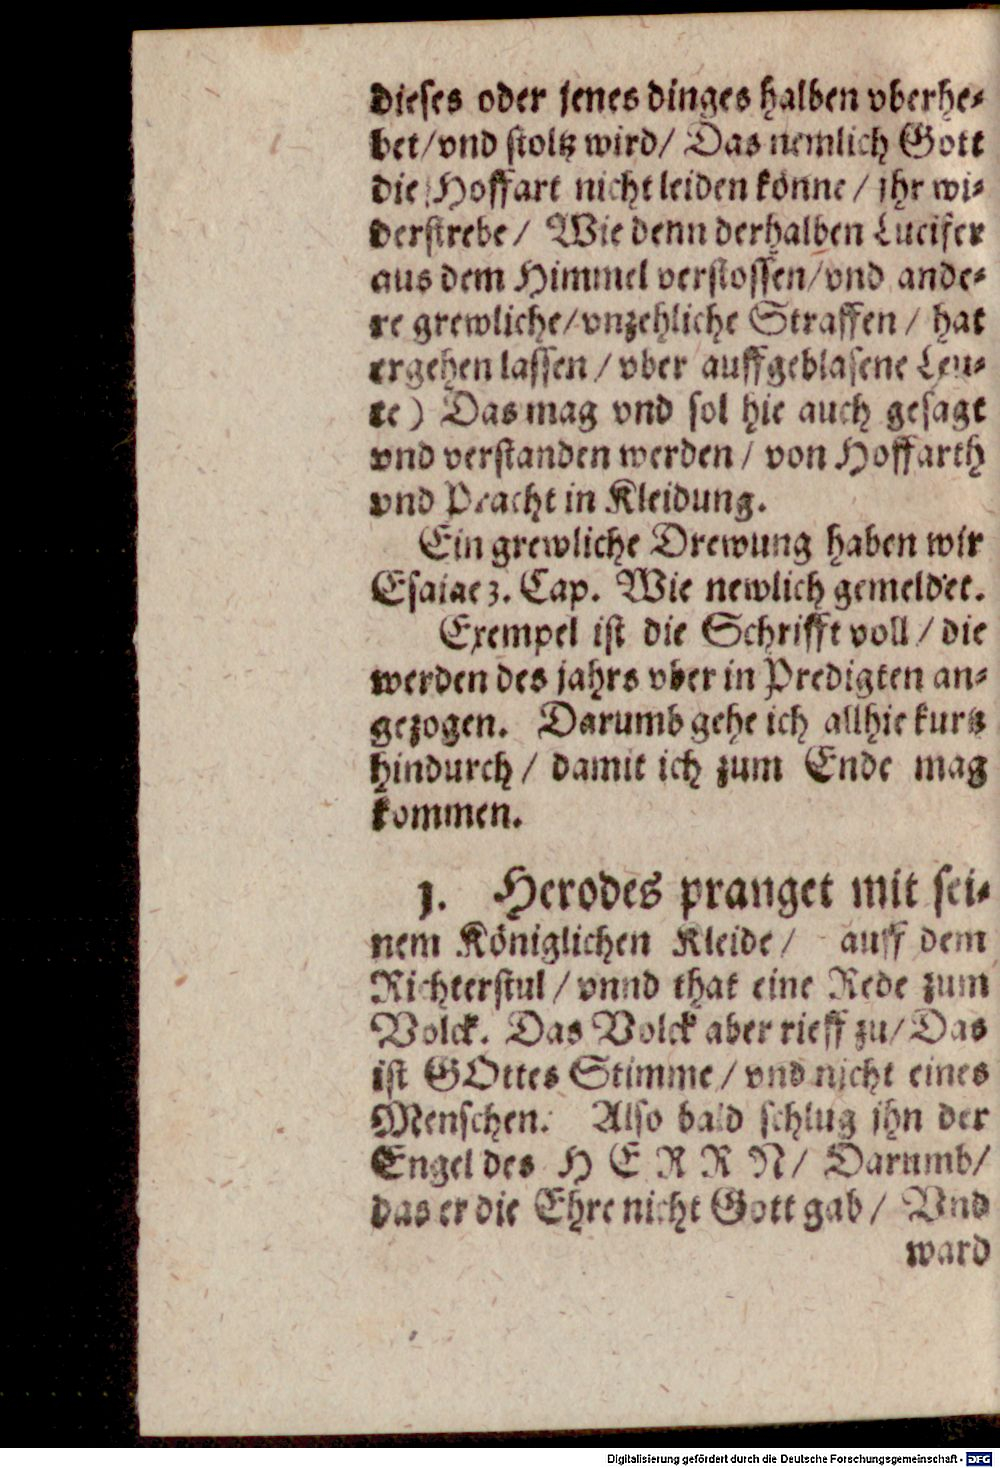 dieses oder jenes dinges halben vberhe-
bet/vnd stoltz wird/ Das nemlich Gott
die Hoffart nicht leiden könne / jhr wi-
derstrebe / Wie denn derhalben Lucifer
aus dem Himmel verstossen/vnd ande-
re grewliche/vnzehliche Straffen / hat
ergehen lassen / vber auffgeblasene Leu-
te ) Das mag vnd sol hie auch gesagt
vnd verstanden werden / von Hoffarth
vnd Pracht in Kleidung.
Ein grewliche Drewung haben wir
Esaiae 3. Cap. Wie newlich gemeldet.
Exempel ist die Schrifft voll / die
werden des jahrs vber in Predigten an-
gezogen. Darumb gehe ich allhie kurtz
hindurch / damit ich zum Ende mag
kommen.
1. Herodes pranget mit sei-
nem Königlichen Kleide / auff dem
Richterstul / vnnd that eine Rede zum
Volck. Das Volck aber rieff zu/ Das
ist GOttes Stimme / vnd nicht eines
Menschen. Also bald schlug jhn der
Engel des H E R R N / Darumb/
das er die Ehre nicht Gott gab / Vnd
ward
Digitalisierung gefördert durch die Deutsche Forschungsgemeinschaft - DFG